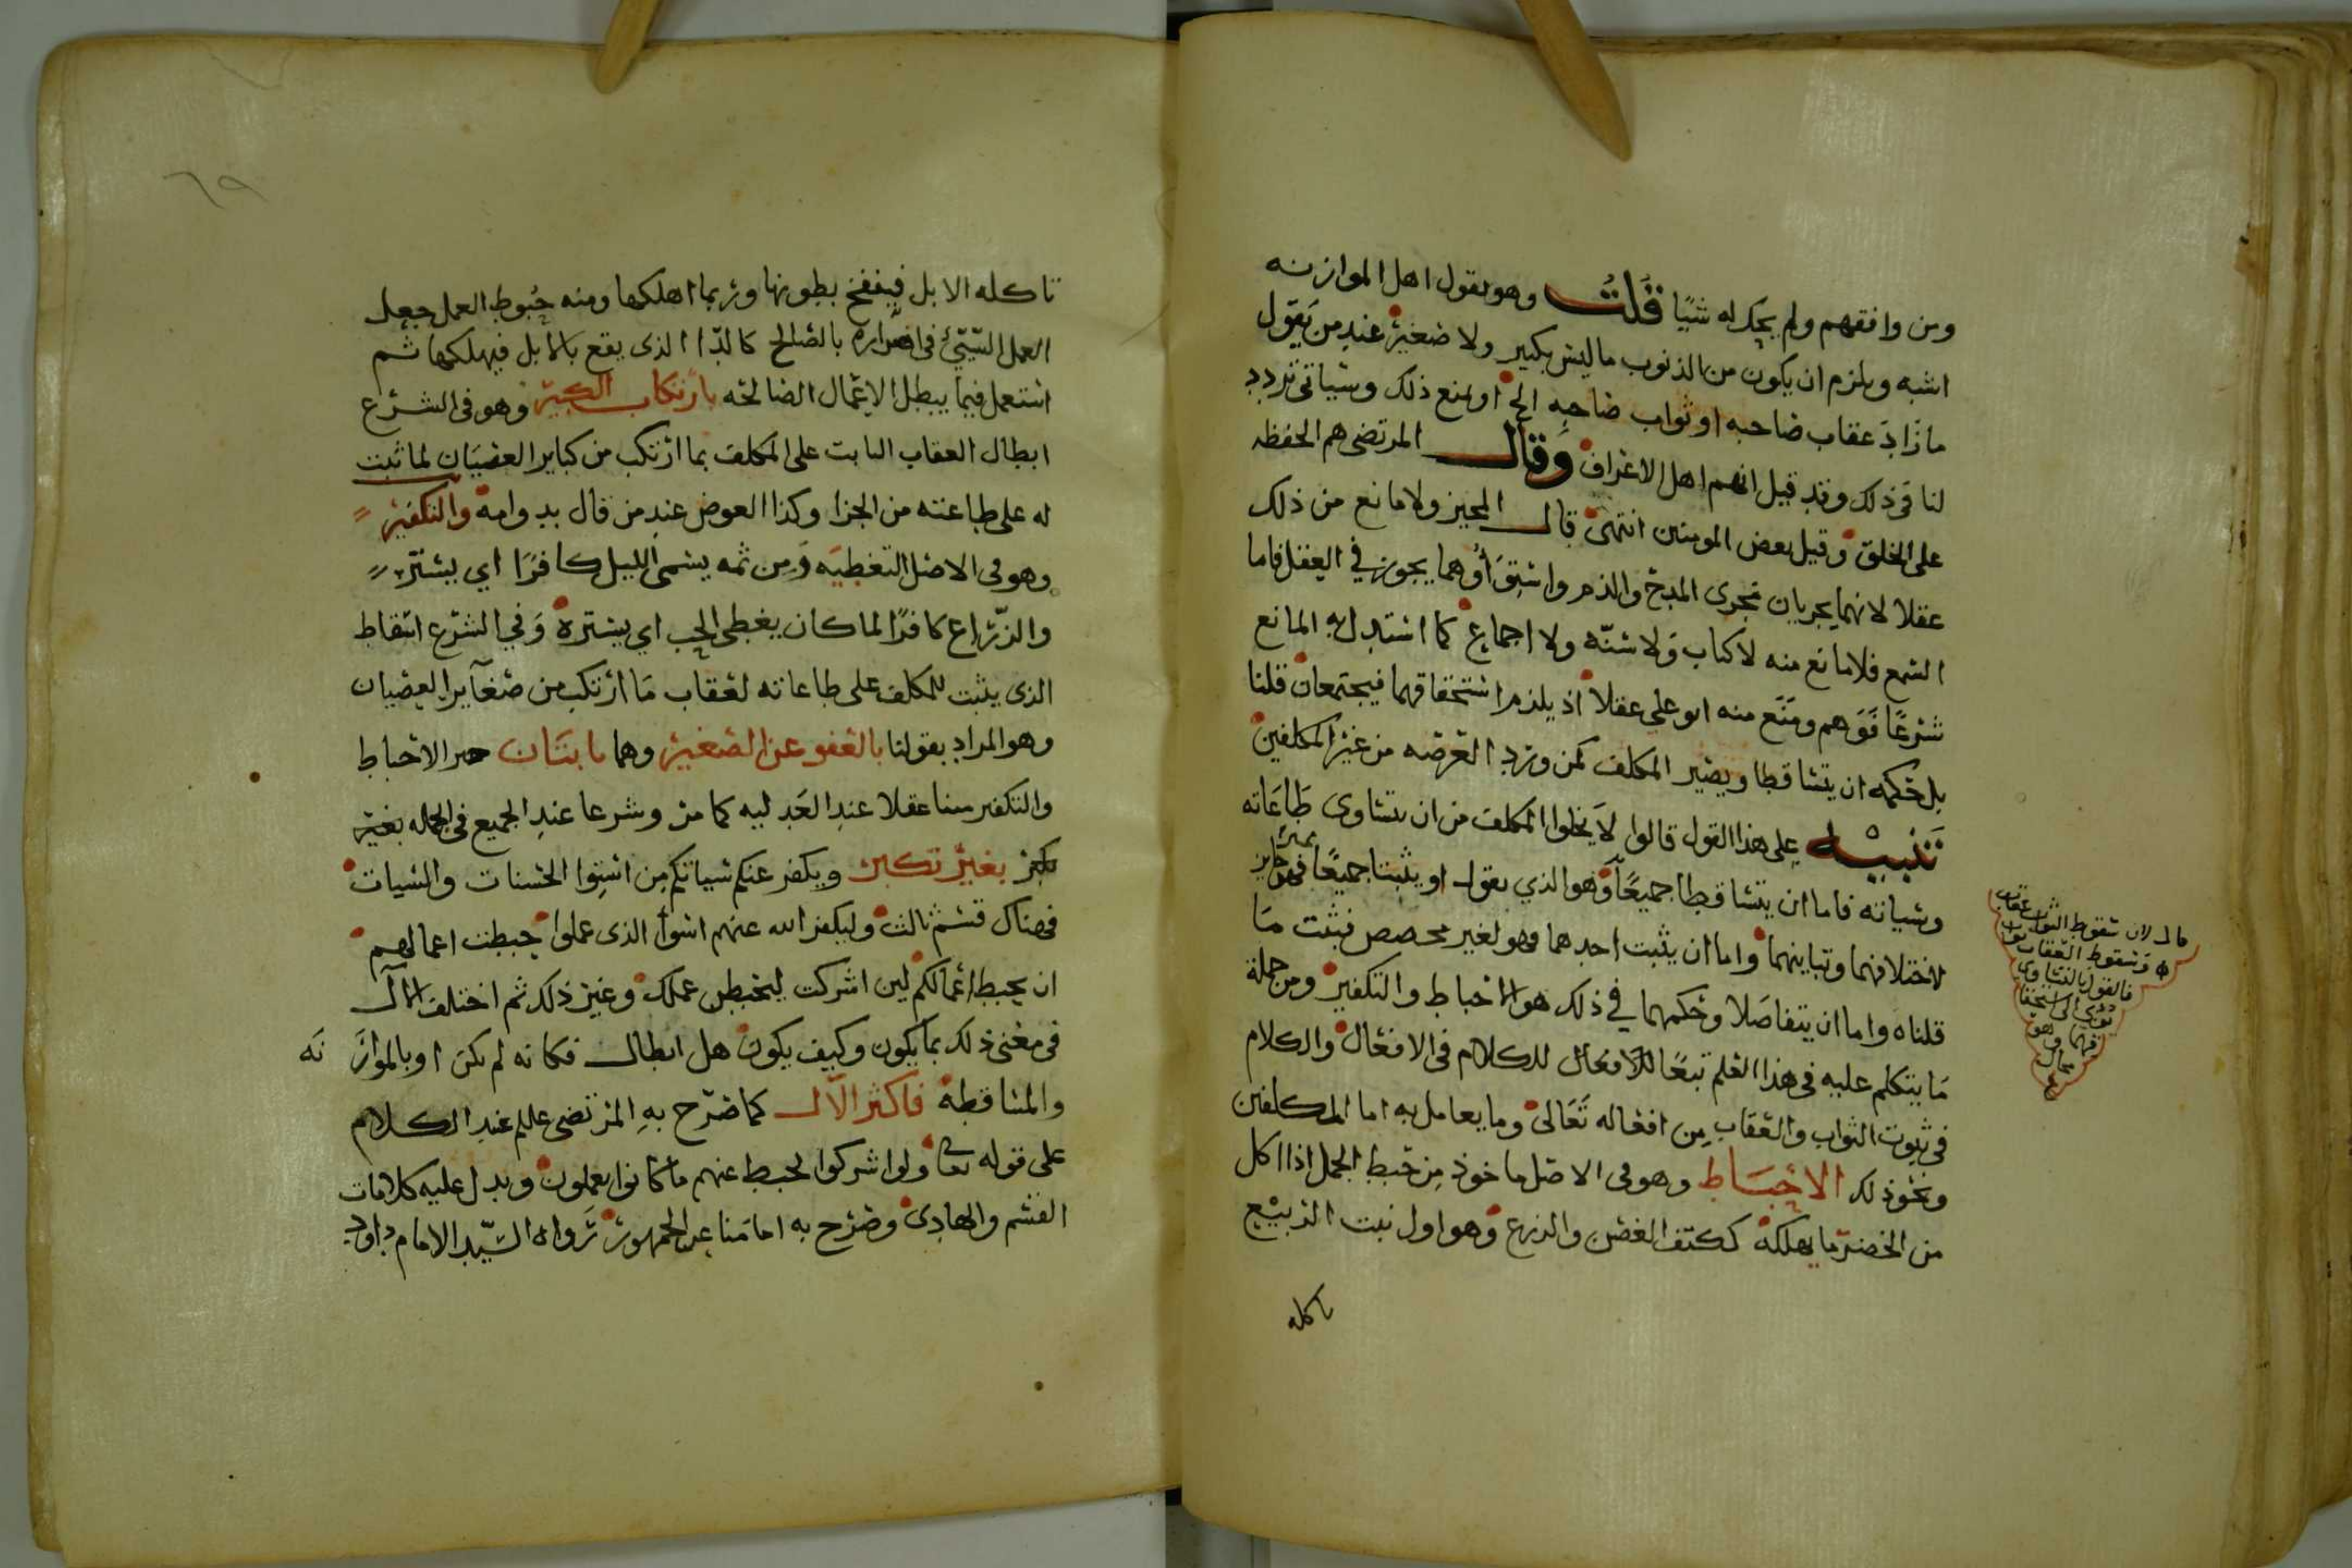 ومن وافقهم ولم يحك له شيًا قلت وهو بقول اهل الموازنه
اشبه ويلزم ان يكون من الذنوب ما ليس بكبير ولا صغيرة عند من يقول
ما زاد عقاب صاحبه او ثواب صاحبه الخ او يمنع ذلك وسياتي تردد
لنا في ذلك وقد قيل انهم اهل الاعراف وقال المرتضى هم الحفظه
على الخلق وقيل بعض المومنين انتهى قال المجيز ولا مانع من ذلك
عقلا لانهما يجريان مجرى المدح والذم واستوَأُوهما يجوز في العقل فاما
السمع فلا مانع منه لا كتاب ولا سنّه ولا اجماع كما استدل به المانع
شرعًا فَوَهم ومَنَع منه ابو علي عقلا اذ يلزم استحقاقهما فيجتمعان قلنا
بل حكمه ان يتساقطا ويصير المكلف كمن ورد العرصه من غير المكلفين
تنبيه على هذا القول قالوا لا يخلوا المكلف من ان تتساوى طاعاته
وسياته فاما ان يتساقطا جميعًا وهو الذي نقول او يثبتا جميعًا فهو غير جايز
لاختلافهما وتباينهما واما ان يثبت احدهما فهو لغير مخصص فثبت ما
قلناه واما ان يتفاصلا وحكمهما في ذلك هو الاحباط والتكفير ومن جملة
ما يتكلم عليه في هذا العلم تبعًا للافعال للكلام في الافعال والكلام
في ثبوت الثواب والعقاب من افعاله تعالى وما يعامل به اما المكلفين
ونحو ذلك الاحباط وهو في الاصل ماخوذ من حبط الجمل اذا اكل
من الخضر ما يهلكه ككتف الغضن والذرع وهو اول نبت الربيع
تاكله
قال لان سقوط الثواب عقاب
وسقوط العقاب ثواب
فالقول بالتساوي
يؤدي الى استحقا
قهما وهو
محال
٦٩
تاكله الابل فينفخ بطونها وربما اهلكها ومنه حبوط العمل جعل
العمل السيّئ في اضراره بالصالح كالدّا الذي يقع بالابل فيهلكها ثم
استعمل فيما يبطل الاعمال الصالحه بارتكاب الكبيرة وهو في الشرع
ابطال العقاب الثابت على المكلف بما ارتكب من كباير العصيان لما ثبت
له على طاعته من الجزا وكذا العوض عند من قال بدوامه والتكفير
وهو في الاصل التغطيه ومن ثمه يسمى الليل كافرًا اي يستر
والزّراع كافرًا لما كان يغطى الحب اي يستره وفي الشرع اسقاط
الذي يثبت للمكلف على طاعاته لعقاب ما ارتكب من صغاير العصيان
وهو المراد بقولنا بالعفو عن الصغيره وهما ثابتان خبر الاحباط
والتكفير هنا عقلا عند العدليه كما مر وشرعا عند الجميع في الجمله بغير
تكبر بغير تكبر ويكفر عنكم سياتكم من استوا الحسنات والسيات
فهناك قسم ثالث وليكفر الله عنهم اسوأ الذي عملوا حبطت اعمالهم
ان يحبط اعمالكم لين اشركت ليحبطن عملك وغير ذلك ثم اختلف الآل
في معنى ذلك بما يكون وكيف يكون هل ابطال فكانه لم يكن او بالموازنه
والمساقطة فاكثر الآل كما صرّح به المرتضى علم عند الكلام
على قوله تعالى ولو اشركوا لحبط عنهم ما كانوا يعملون ويدل عليه كلامات
القسم والهادى وصرّح به امامنا عن الجمهور رواه السيّد الامام داود